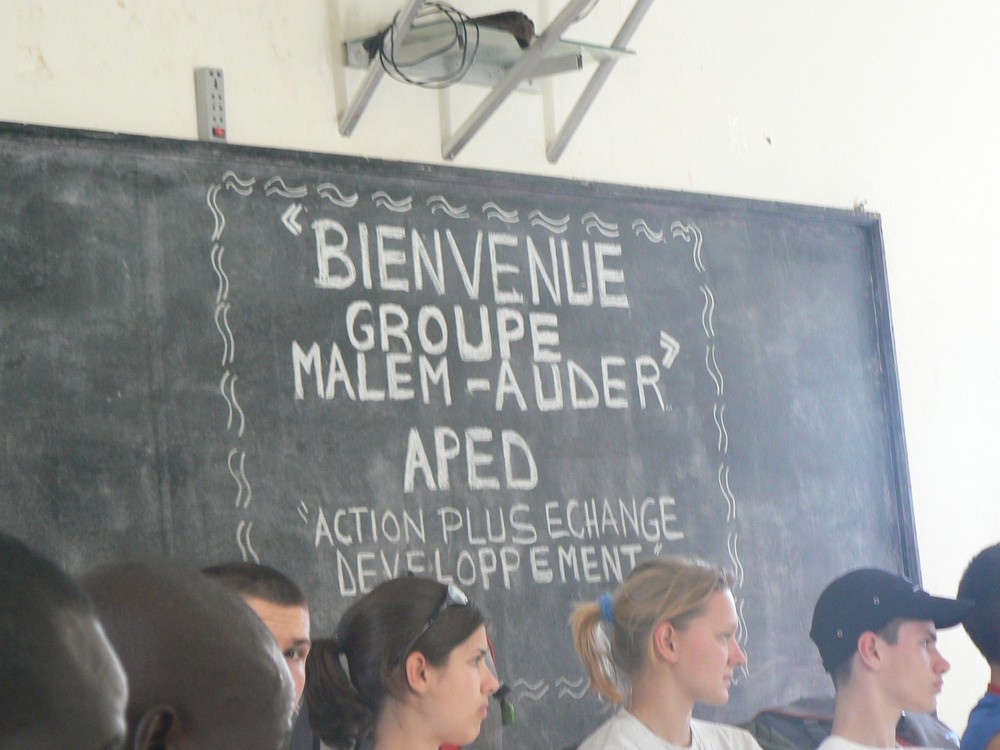 « BIENVENUE
GROUPE
MALEM-AUDER »
APED
"ACTION PLUS ECHANGE
DEVELOPPEMENT"